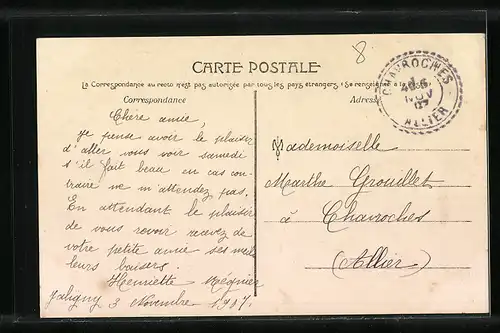 8
CARTE POSTALE
La Correspondance au recto n'est pas autorisée par tous les pays étrangers. (Se renseigner à la Poste)
Correspondance
Adresse
CHAVROCHES
NOV
07
ALLIER
Chère amie,
Je pense avoir le plaisir
d'aller vous voir samedi
s'il fait beau en cas con
traire ne m'attendez pas.
En attendant le plaisir
de vous revoir recevez de
votre petite amie ses meil
leurs baisers.
Henriette Mégnier
Jaligny 3 Novembre 1907.
Mademoiselle
Marthe Grouillet
à Chavroches
(Allier)